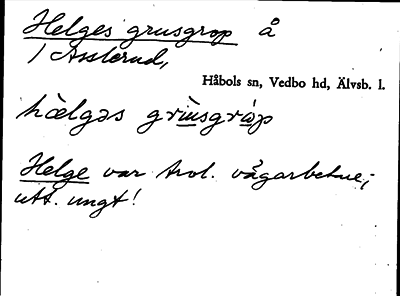 Helges grusgrop å
1 Asslerud,
Håbols sn, Vedbo hd, Älvsb. l.
hèlgəs grùsgróp
Helge var trol. vägarbetare;
utt. ungt!